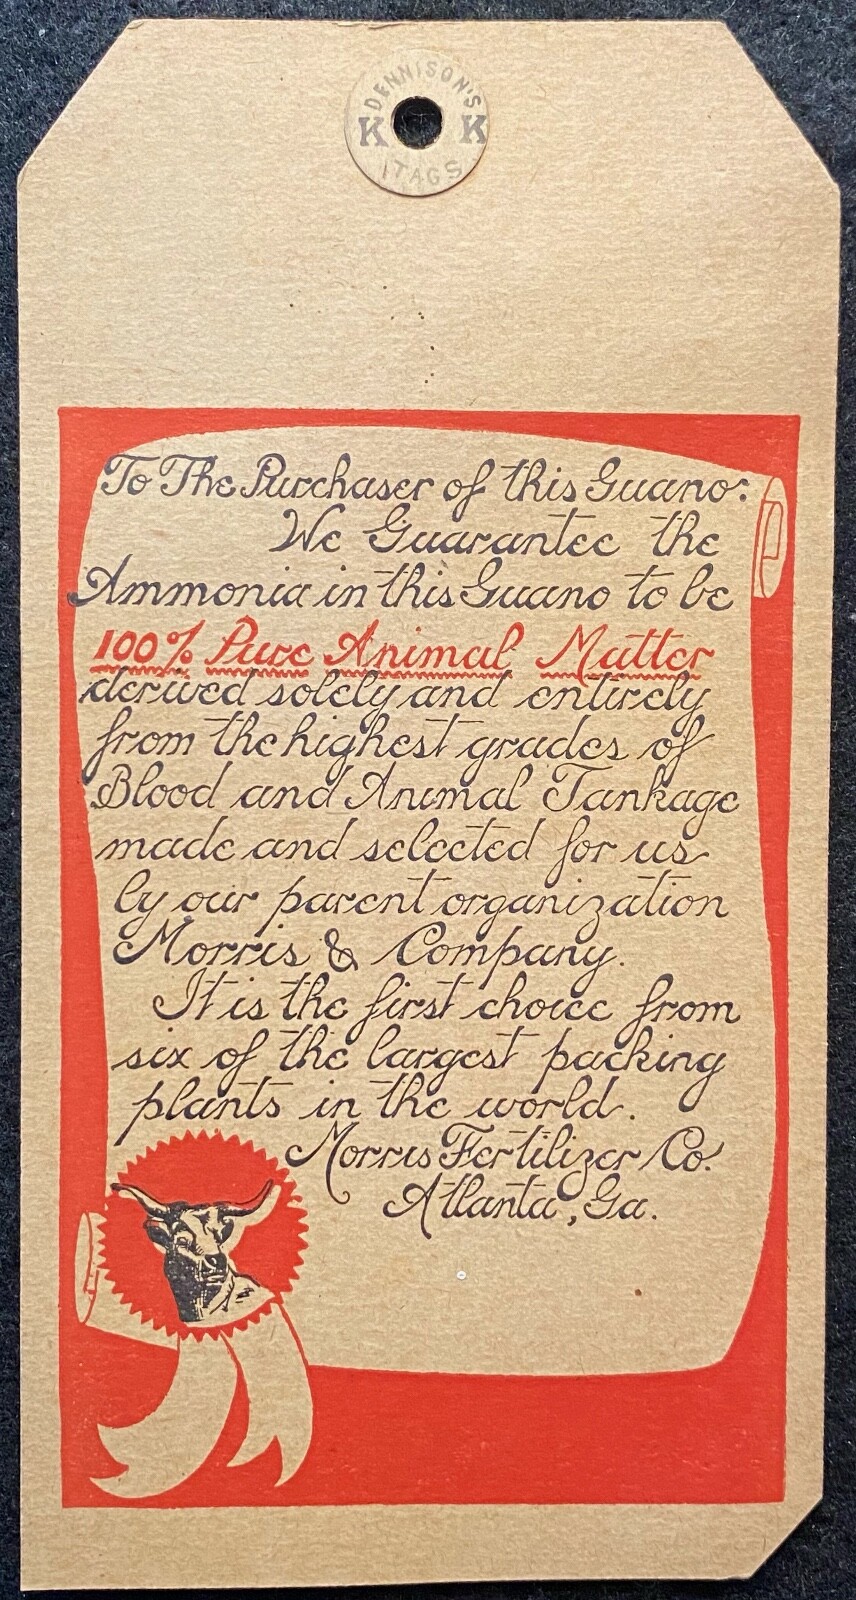 DENNISON'S
K K
TAGS
To The Purchaser of this Guano:
We Guarantee the
Ammonia in this Guano to be
100% Pure Animal Matter
derived solely and entirely
from the highest grades of
Blood and Animal Tankage
made and selected for us
by our parent organization
Morris & Company.
It is the first choice from
six of the largest packing
plants in the world.
Morris Fertilizer Co.
Atlanta, Ga.